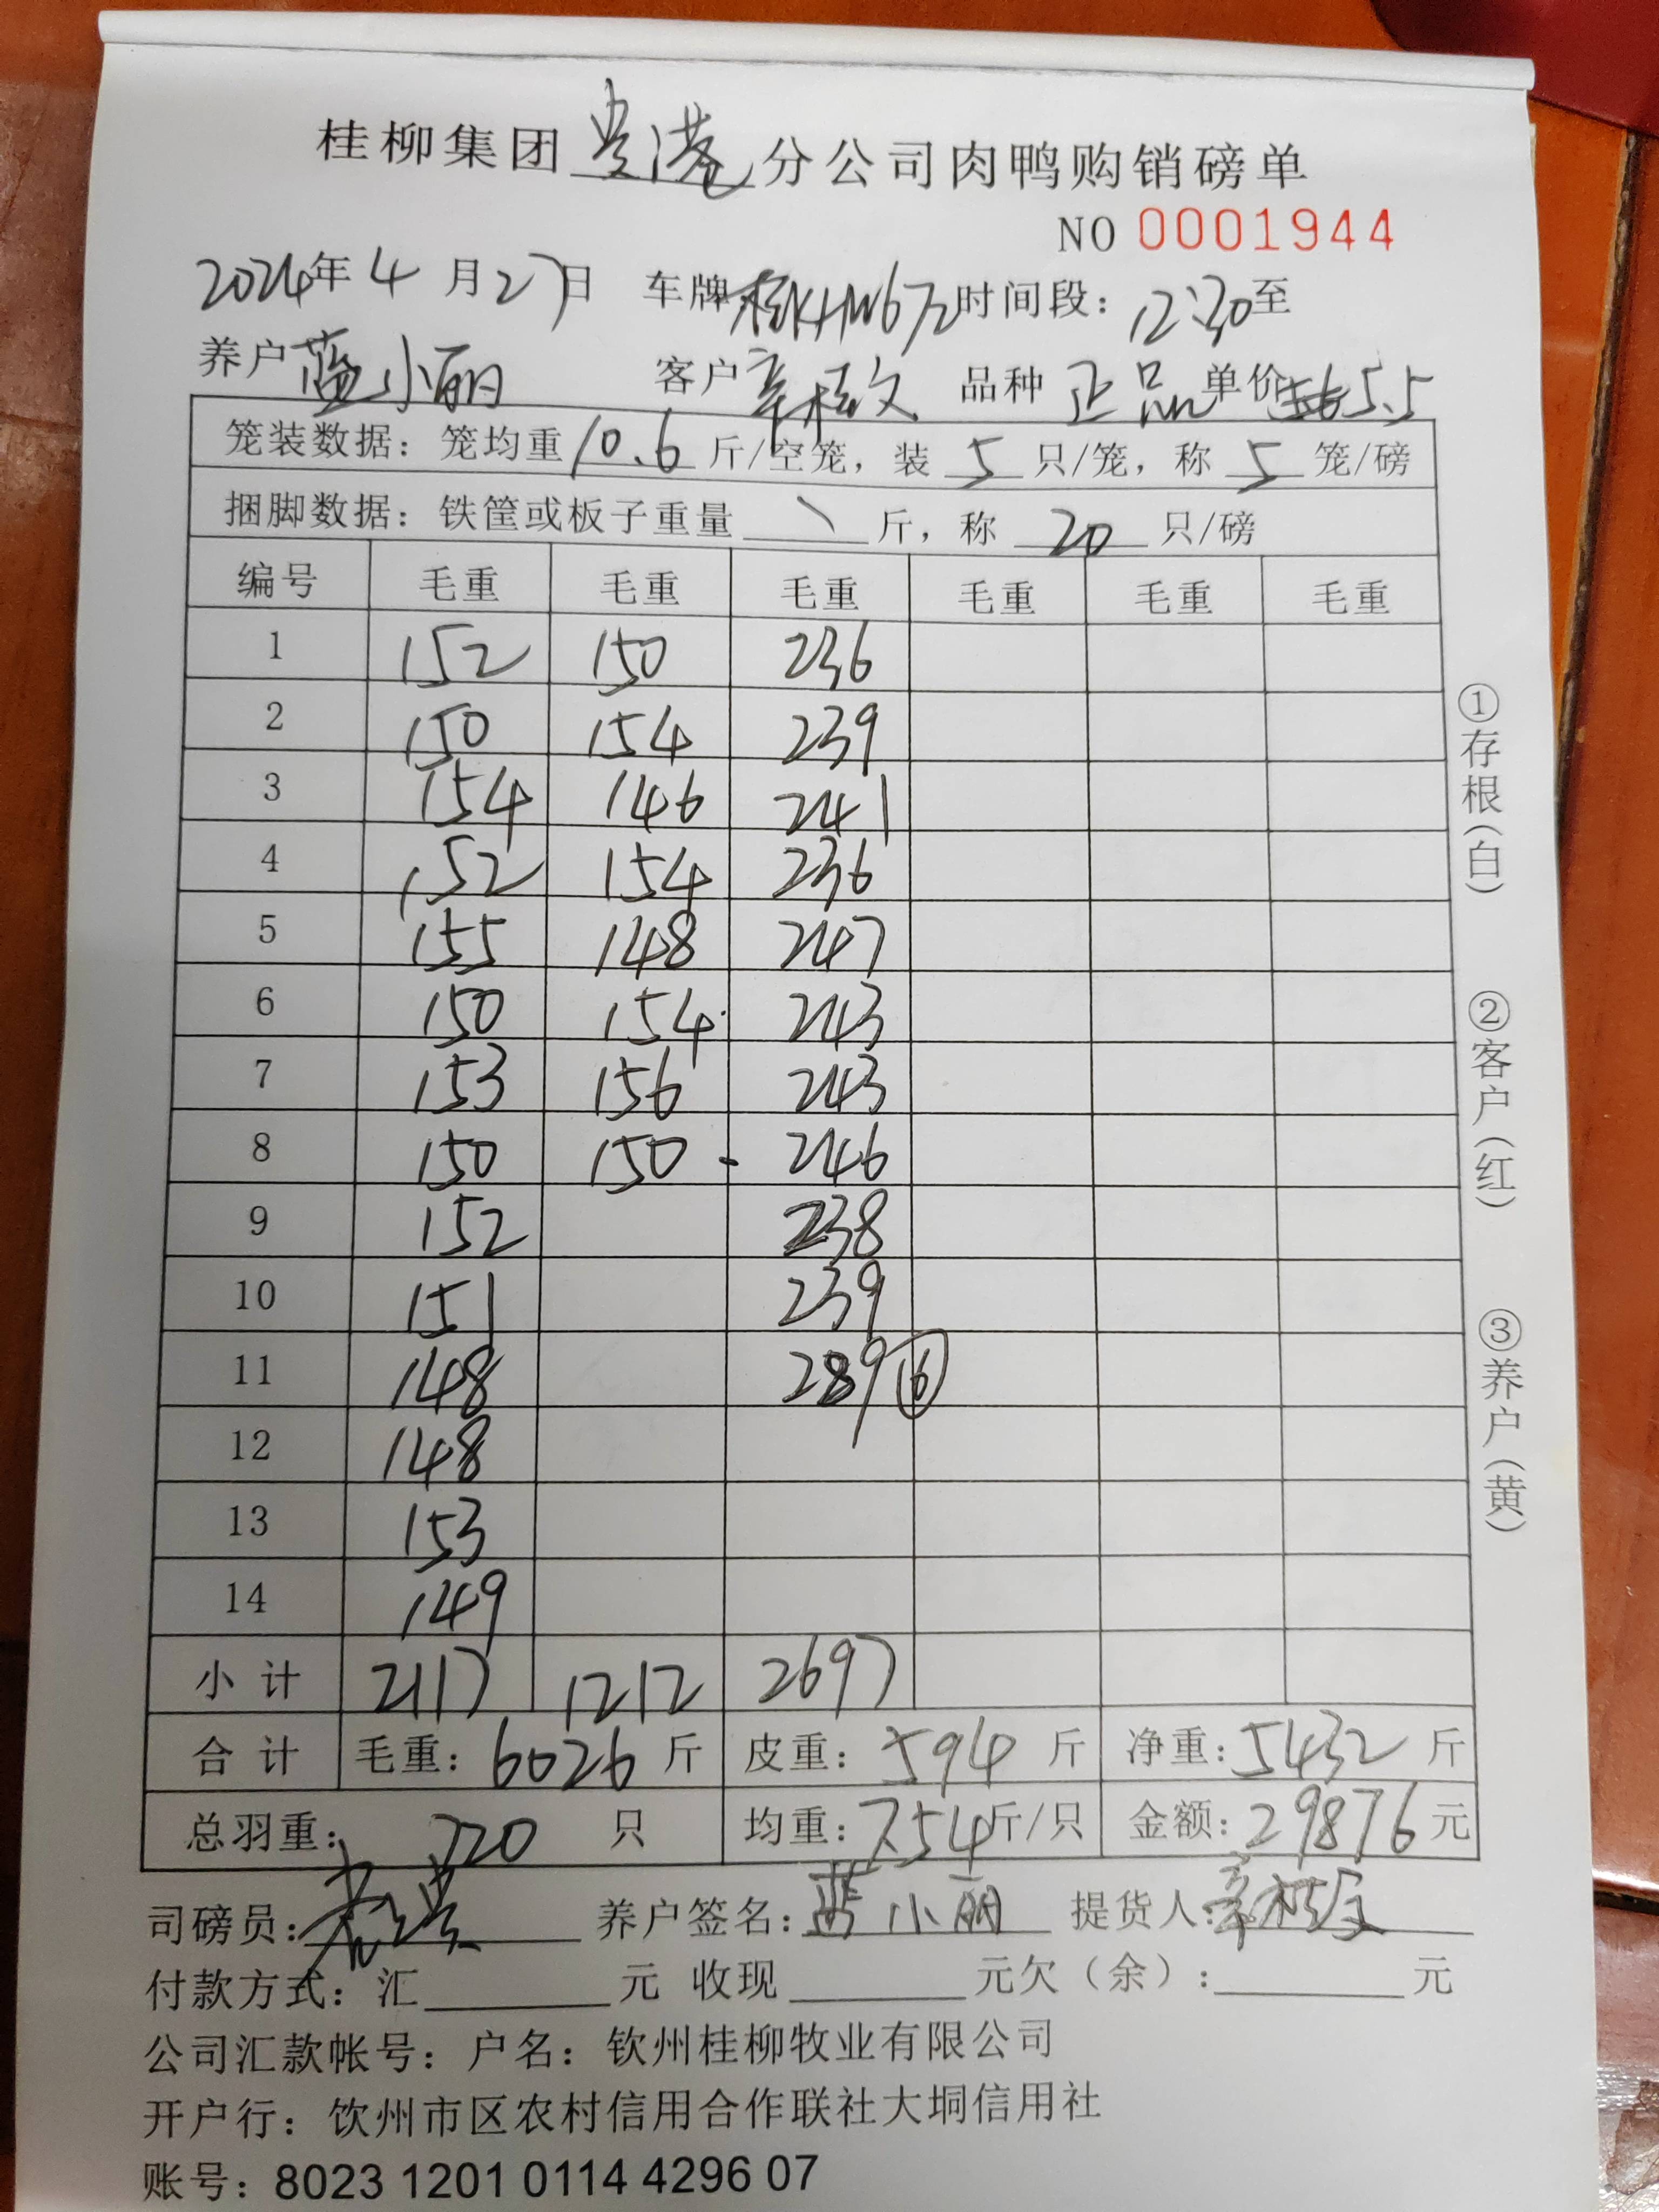 桂柳集团贵港分公司肉鸭购销磅单
NO 0001944
2024年4月27日 车牌桂KHW672时间段：12:30至
养户蓝小丽 客户辛桂文 品种正品单价5.5
笼装数据：笼均重10.6斤/空笼，装5只/笼，称5笼/磅
捆脚数据：铁筐或板子重量\斤，称20只/磅
编号 毛重 毛重 毛重 毛重 毛重 毛重
1 152 150 236
2 150 154 239
3 154 146 241
4 152 154 236
5 155 148 247
6 150 154 243
7 153 156 243
8 150 150 246
9 152 238
10 151 239
11 148 289 ⑥
12 148
13 153
14 149
小计 2117 1212 2697
合计 毛重：6026斤 皮重：594斤 净重：5432斤
总羽重：720只 均重：7.54斤/只 金额：29876元
司磅员： 养户签名：蓝小丽 提货人：辛桂文
付款方式：汇元 收现元欠（余）：元
公司汇款帐号：户名：钦州桂柳牧业有限公司
开户行：饮州市区农村信用合作联社大垌信用社
账号：8023 1201 0114 4296 07
①存根（白）
②客户（红）
③养户（黄）